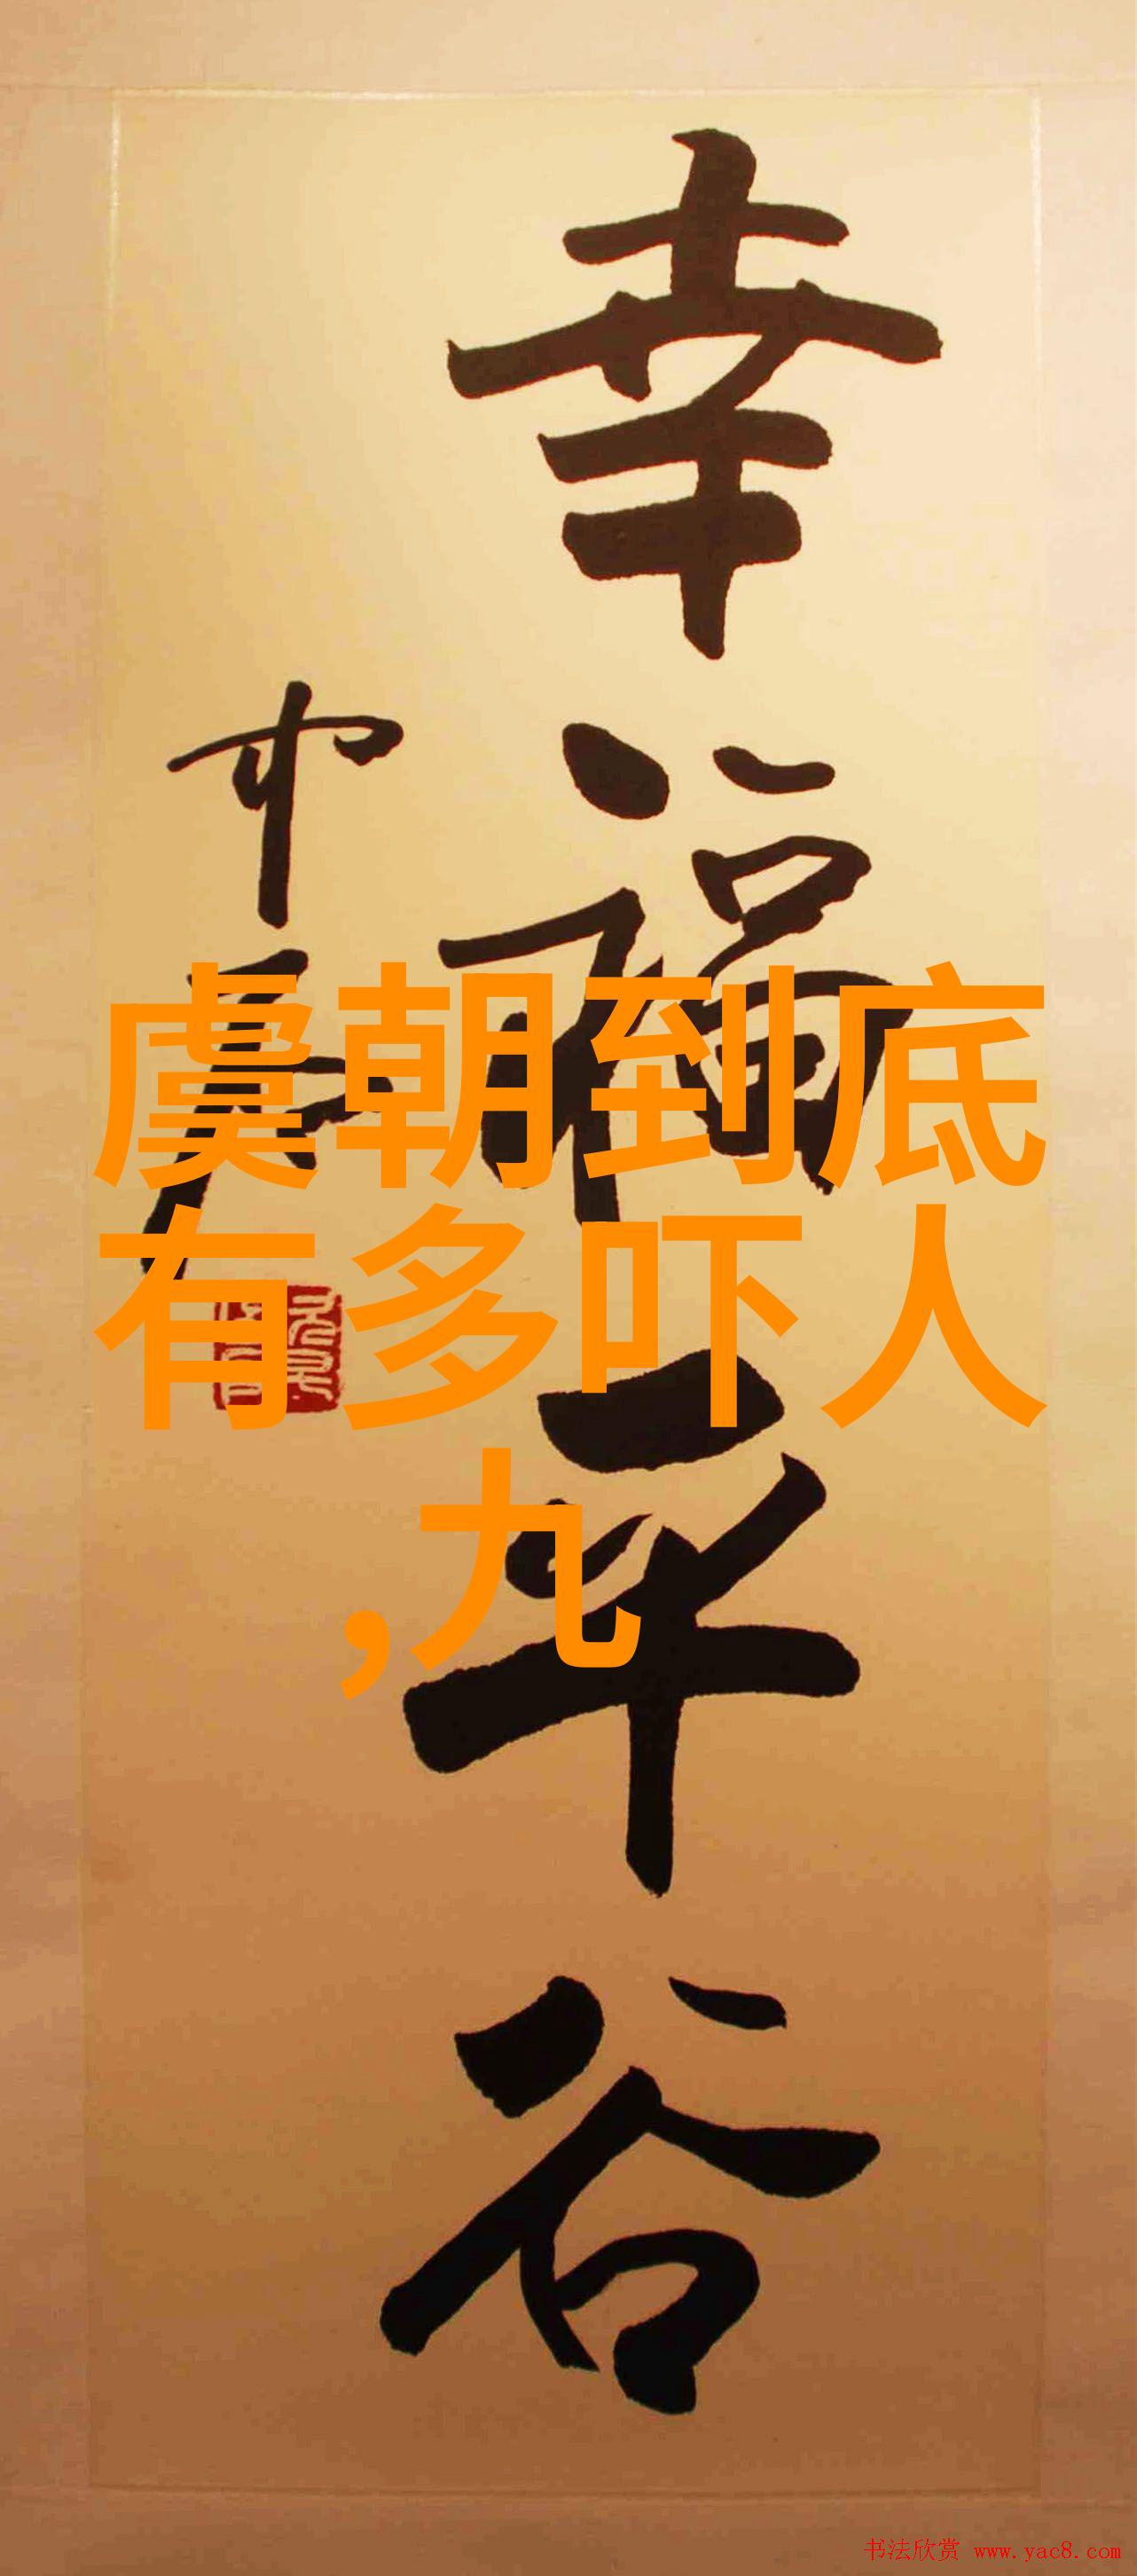 幸福平谷
虞朝到底
有多吓人
,九
书法欣赏 www.yac8.com